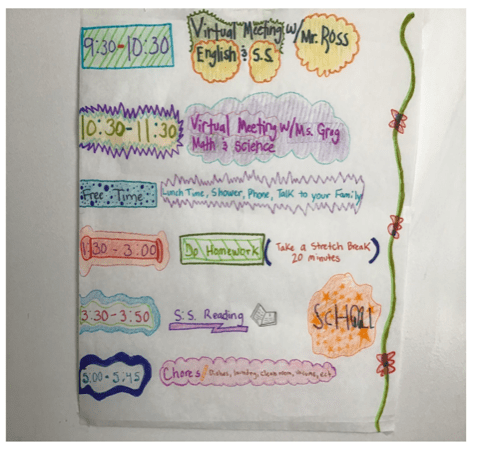 9:30-10:30
Virtual Meeting w/ Mr. Ross
English & S.S.
10:30-11:30
Virtual Meeting w/Ms. Greg
Math & Science
Free Time
Lunch Time, Shower, Phone, Talk to your Family
1:30 - 3:00
Do Homework
(Take a Stretch Break
20 minutes)
3:30-3:50
S.S. Reading
5:00-5:45
Chores
Dishes, laundry, clean room,